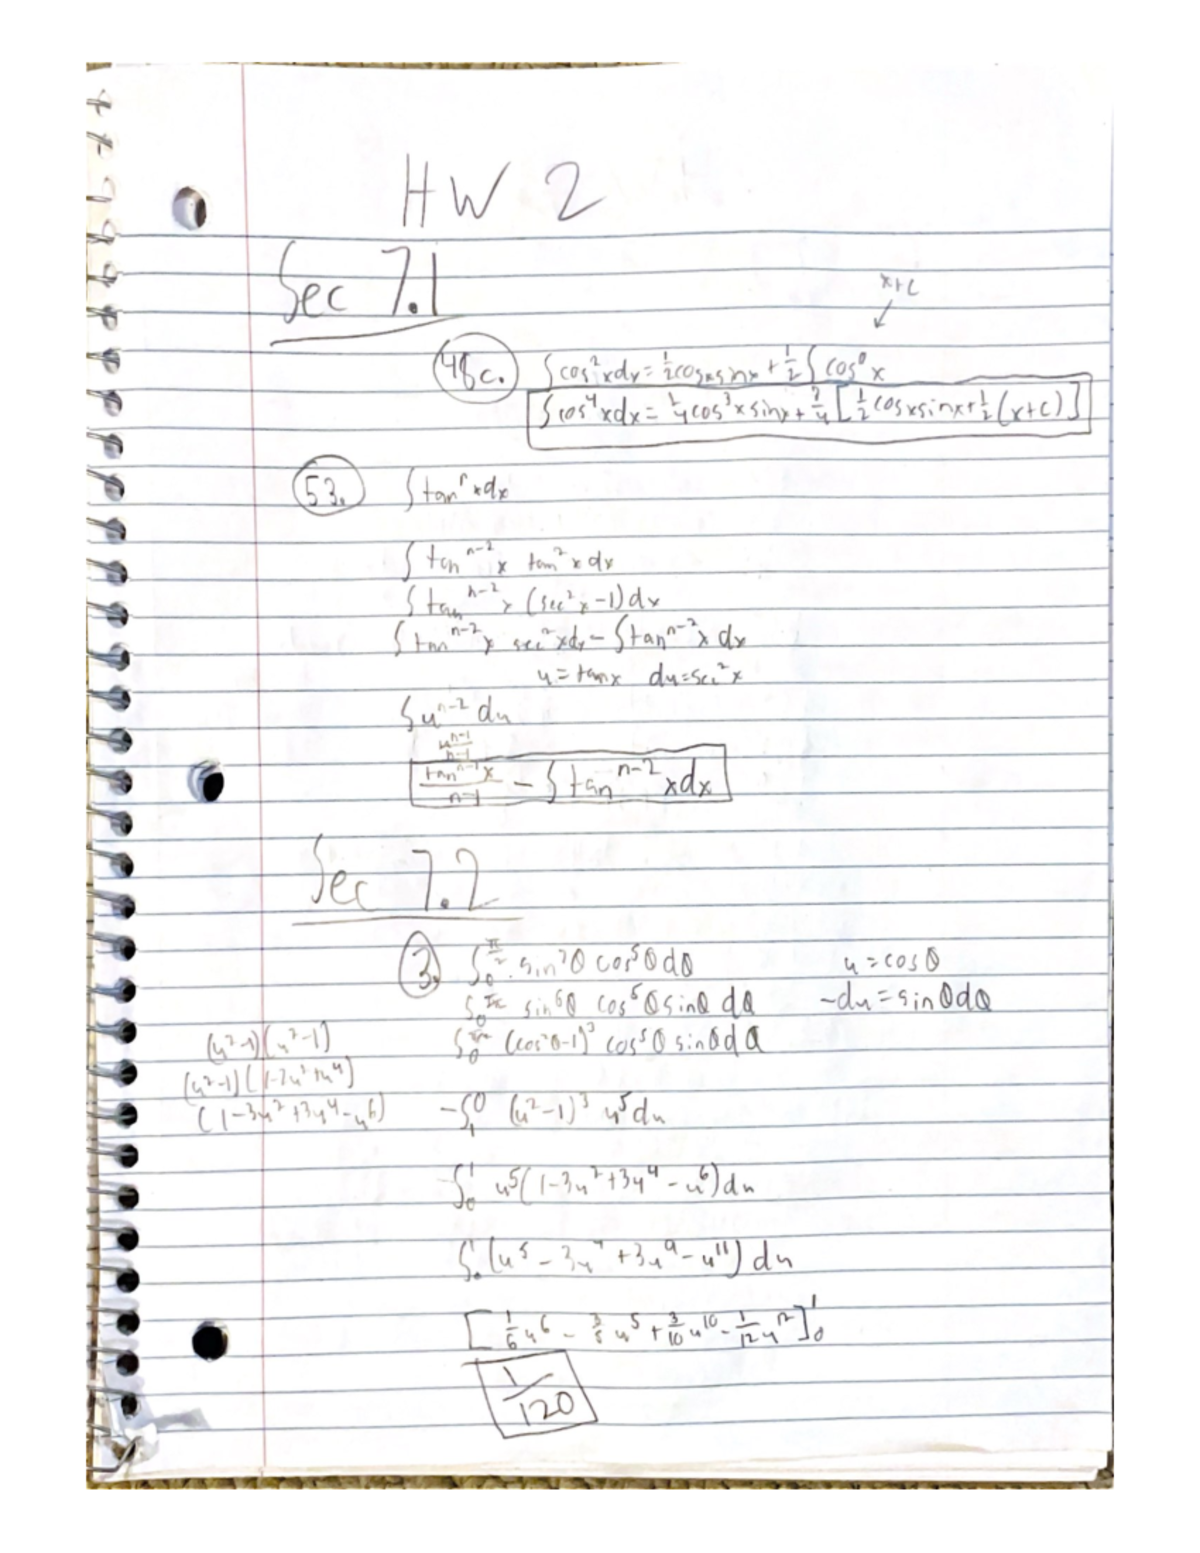 HW 2
Sec 7.1
x+c
48c. ∫cos²xdx = ½cosxsinx + ½∫cos⁰x
∫cos⁴xdx = ¼cos³xsinx + ¾[½cosxsinx + ½(x+c)]
53. ∫tanⁿxdx
∫tanⁿ⁻²x tan²xdx
∫tanⁿ⁻²x (sec²x-1)dx
∫tanⁿ⁻²x sec²xdx - ∫tanⁿ⁻²x dx
u = tanx du=sec²x
∫uⁿ⁻² du
uⁿ⁻¹/n-1
tanⁿ⁻¹x/n-1 - ∫tanⁿ⁻²xdx
Sec 7.2
3. ∫₀^(π/2) sin⁷θ cos⁵θdθ u = cosθ
∫₀^(π/2) sin⁶θ cos⁵θsinθ dθ -du = sinθdθ
(u²-1)(u²-1) ∫₀^(π/2) (cos²θ-1)³ cos⁵θsinθdθ
(u²-1)(1-2u²+u⁴)
(1-3u²+3u⁴-u⁶) -∫₁⁰ (u²-1)³ u⁵du
∫₀¹ u⁵(1-3u²+3u⁴-u⁶)du
∫₀¹(u⁵-3u⁷+3u⁹-u¹¹)du
[1/6u⁶ - 3/8u⁸ + 3/10u¹⁰ - 1/12u¹²]₀¹
1/120